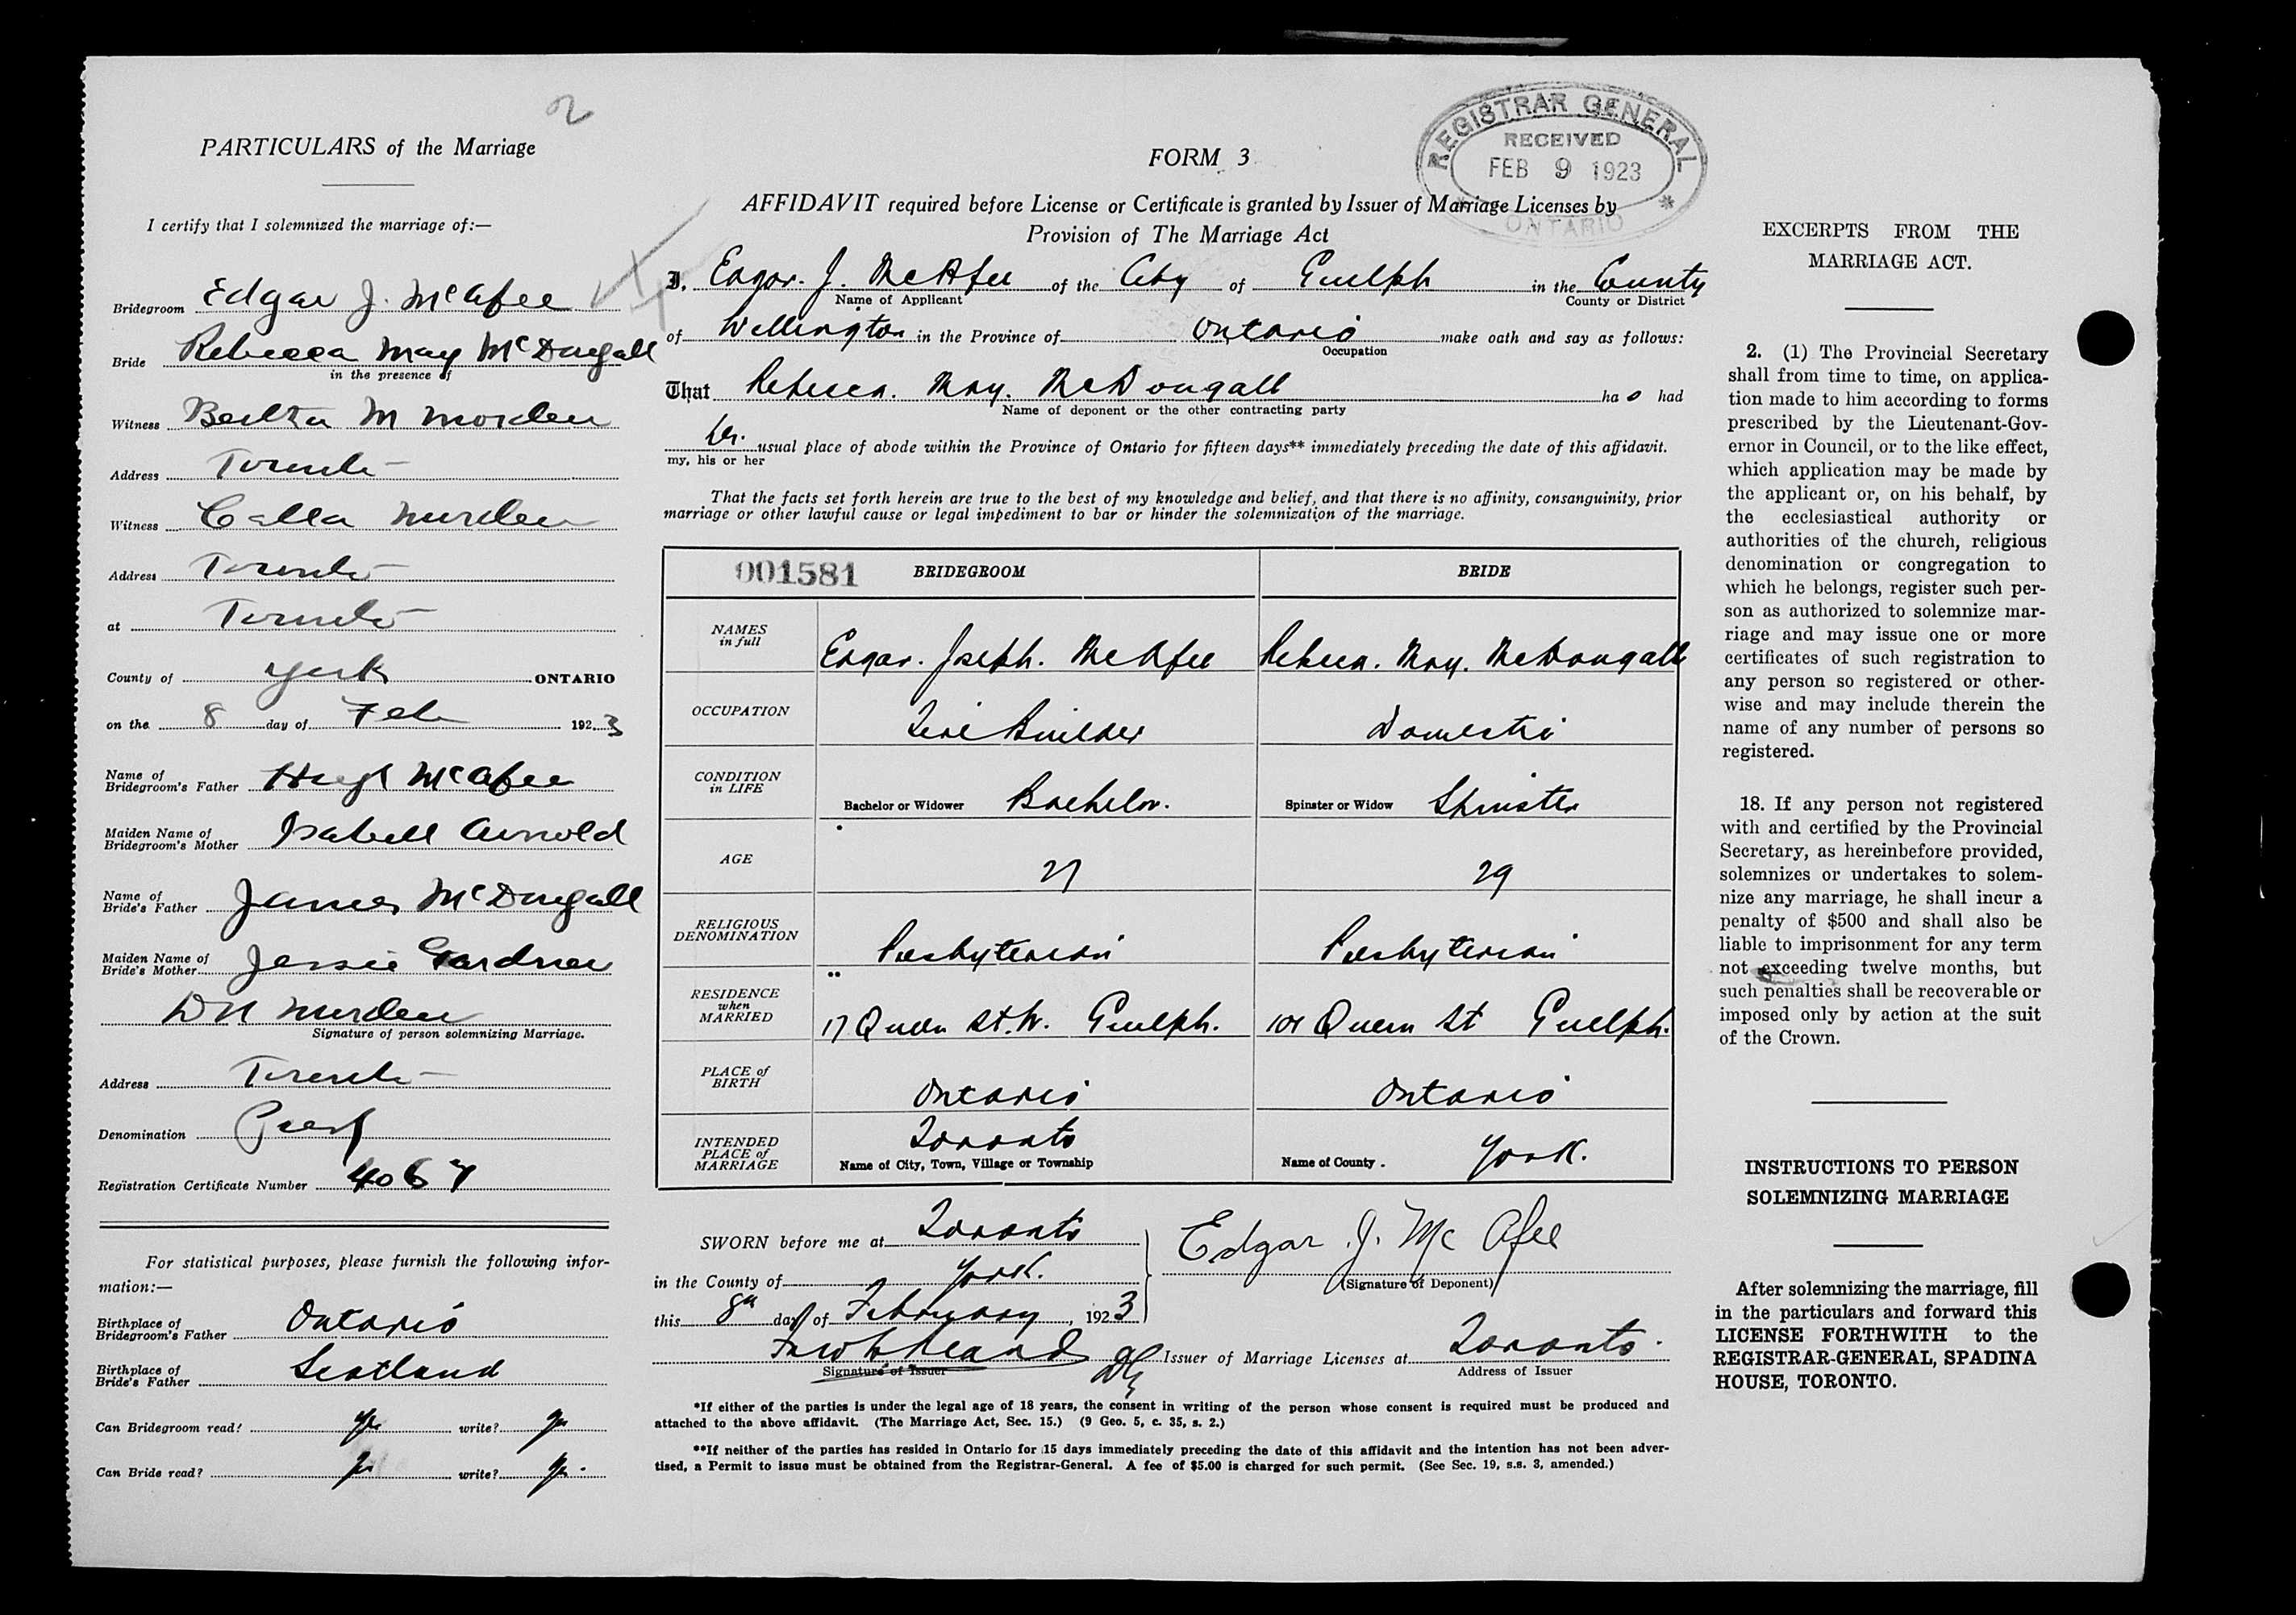 2
PARTICULARS of the Marriage
I certify that I solemnized the marriage of:—
Bridegroom Edgar J. McAfee
Bride Rebecca May McDougall
in the presence of
Witness Bertha M Morden
Address Toronto
Witness Calla Morden
Address Toronto
at Toronto
County of York ONTARIO
on the 8 day of Feb 1923
Name of Bridegroom's Father Hugh McAfee
Maiden Name of Bridegroom's Mother Isabell Arnold
Name of Bride's Father James McDougall
Maiden Name of Bride's Mother Jessie Gardner
D N Morden
Signature of person solemnizing Marriage.
Address Toronto
Denomination Presb
Registration Certificate Number 4067
For statistical purposes, please furnish the following infor-
mation:—
Birthplace of Bridegroom's Father Ontario
Birthplace of Bride's Father Scotland
Can Bridegroom read? Yes write? Yes
Can Bride read? Yes write? Yes.
REGISTRAR GENERAL
RECEIVED
FEB 9 1923
ONTARIO
FORM 3
AFFIDAVIT required before License or Certificate is granted by Issuer of Marriage Licenses by
Provision of The Marriage Act
I, Edgar. J. McAfee of the City of Guelph in the County
Name of Applicant County or District
of Wellington in the Province of Ontario make oath and say as follows:
Occupation
That Rebecca. May. McDougall ha s had
Name of deponent or the other contracting party
her. usual place of abode within the Province of Ontario for fifteen days** immediately preceding the date of this affidavit.
my, his or her
That the facts set forth herein are true to the best of my knowledge and belief, and that there is no affinity, consanguinity, prior
marriage or other lawful cause or legal impediment to bar or hinder the solemnization of the marriage.
001581 BRIDEGROOM BRIDE
NAMES in full Edgar. Joseph. McAfee Rebecca. May. McDougall
OCCUPATION Tire Builder Domestic
CONDITION in LIFE Bachelor or Widower Bachelor. Spinster or Widow Spinster
AGE 27 29
RELIGIOUS DENOMINATION Presbyterian Presbyterian
RESIDENCE when MARRIED 17 Queen St. W. Guelph. 101 Queen St Guelph.
PLACE of BIRTH Ontario Ontario
INTENDED PLACE of MARRIAGE Toronto York.
Name of City, Town, Village or Township Name of County.
SWORN before me at Toronto
in the County of York.
this 8th day of February, 1923
Edgar J. McAfee
(Signature of Deponent)
Signature of Issuer
Issuer of Marriage Licenses at Toronto.
Address of Issuer
*If either of the parties is under the legal age of 18 years, the consent in writing of the person whose consent is required must be produced and
attached to the above affidavit. (The Marriage Act, Sec. 15.) (9 Geo. 5, c. 35, s. 2.)
**If neither of the parties has resided in Ontario for 15 days immediately preceding the date of this affidavit and the intention has not been adver-
tised, a Permit to issue must be obtained from the Registrar-General. A fee of $5.00 is charged for such permit. (See Sec. 19, s.s. 3, amended.)
EXCERPTS FROM THE
MARRIAGE ACT.
2. (1) The Provincial Secretary
shall from time to time, on applica-
tion made to him according to forms
prescribed by the Lieutenant-Gov-
ernor in Council, or to the like effect,
which application may be made by
the applicant or, on his behalf, by
the ecclesiastical authority or
authorities of the church, religious
denomination or congregation to
which he belongs, register such per-
son as authorized to solemnize mar-
riage and may issue one or more
certificates of such registration to
any person so registered or other-
wise and may include therein the
name of any number of persons so
registered.
18. If any person not registered
with and certified by the Provincial
Secretary, as hereinbefore provided,
solemnizes or undertakes to solem-
nize any marriage, he shall incur a
penalty of $500 and shall also be
liable to imprisonment for any term
not exceeding twelve months, but
such penalties shall be recoverable or
imposed only by action at the suit
of the Crown.
INSTRUCTIONS TO PERSON
SOLEMNIZING MARRIAGE
After solemnizing the marriage, fill
in the particulars and forward this
LICENSE FORTHWITH to the
REGISTRAR-GENERAL, SPADINA
HOUSE, TORONTO.